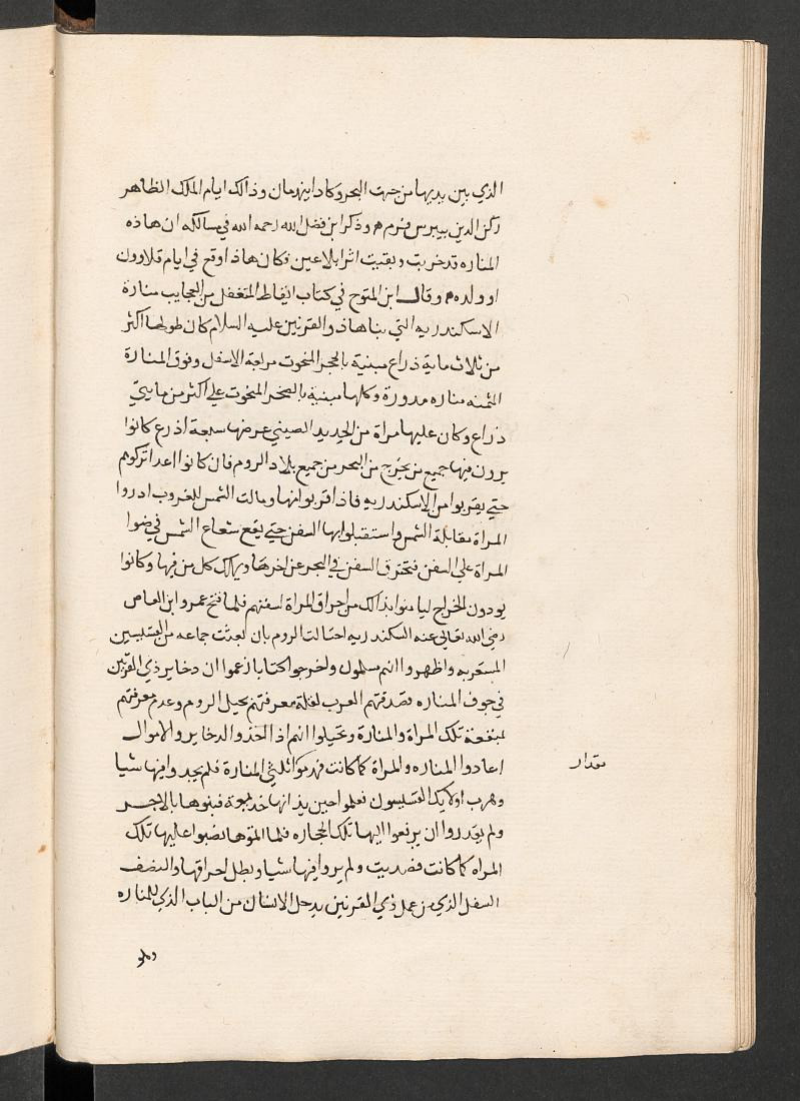 الذي بين يديها من جهت البحر وكاد اينهدمان وذالك ايام الملك الظاهر
ركن الدين بيبرس فرم وذكر ابن فضل الله رحمه الله في مسالكه ان هاذه
المناره قد خربت وبقيت اثرا بلا عين فكان هاذا وقع في ايام قلاوون
او ولده وقال ابن المتوج في كتاب ايقاظ المتغفل من العجايب منارة
الاسكندريه التي بناها ذو القرنين عليه السلام كان طولها اكثر
من ثلاث ماية ذراع مبنية بالحجر المنحوت مربعة الاسفل وفوق المنارة
المثمنه مناره مدورة وكلها مبنية بالصخر المنحوت علي اكثر من مايتي
ذراع وكان عليها مراة من الحديد الصيني عرضها سبعة اذرع كانوا
يرون فيها جميع من يخرج من البحر من جميع بلاد الروم فان كانوا اعدا تركوهم
حتي يقربوا من الاسكندريه فاذا قربوا منها ومالت الشمس للغروب ادروا
المراة مقابلة الشمس واستقبلوا بها السفن حتي يقع شعاع الشمس في ضوا
المراة علي السفن فتحترق السفن في البحر عن اخرها ويهالك كل من فيها وكانوا
يودون الخراج ليامنوا بذالك من احراق المراة لسفنهم فلما فتح عمرو ابن العاص
رضي الله تعالي عنه السكندريه احتالت الروم بان بعثت جماعه من القسيسين
المستعربه واظهروا انهم مسلمون واخرجوا كتابا زعموا ان دخاير ذي القرنين
في جوف المناره فصدقتهم العرب لقلة معرفتهم بحيل الروم وعدم معرفتهم
بمنفعة تلك المراة والمنارة وتخيلوا انهم اذا اخذوا الدخاير والاموال
اعادوا المناره والمراة كما كانت فهدموا ثلثي المنارة فلم يجدوا فيها شيا
وهرب اولايك القسيسون فعلموا حين يذ انها خديعة فبنوها بالاجر
ولم يقدروا ان يرفعوا اليها تلك الحجاره فلما اتموها نصبوا عليها تلك
المراه كما كانت فصديت ولم يروا فيها شيا وبطل احراقها والنصف
السفل الذي من عمل ذي القرنين يدخل الانسان من الباب الذي للمناره
مقدار
وهو